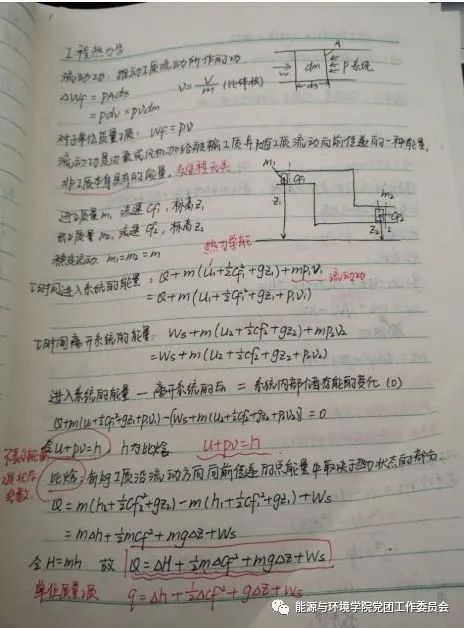 工程热力学
流动功：推动工质流动所作的功
A
dm
p系统
ΔWf = pAds
v= V/m (比体积)
ds
= pdv = pvdm
对于单位质量工质：wf = pv
流动功是由泵或风机加给被输工质并随工质流动向前传递的一种能量，
非工质本身具有的能量，与过程无关
m1
cf1
z1
m2
cf2
z2
进口质量m1，流速cf1，标高z1
出口质量m2，流速cf2，标高z2
稳定流动 m1=m2=m
热力学能
τ时间进入系统的能量：Q+m(u1+½cf1²+gz1)+mp1v1
流动功
=Q+m(u1+½cf1²+gz1+p1v1)
τ时间离开系统的能量：Ws+m(u2+½cf2²+gz2)+mp2v2
=Ws+m(u2+½cf2²+gz2+p2v2)
进入系统的能量 — 离开系统的En = 系统内部储存能的变化 (0)
Q+m(u1+½cf1²+gz1+p1v1)-[Ws+m(u2+½cf2²+gz2+p2v2)]=0
令u+pv=h h为比焓 u+pv=h
不表示能量
状态
参数
比焓：每kg工质沿流动方向向前传递的总能量中取决于热力状态的部分
Q=m(h2+½cf2²+gz2)-m(h1+½cf1²+gz1)+Ws
=mΔh+½mcf²+mgΔz+Ws
令H=mh 故 Q=ΔH+½mΔcf²+mgΔz+Ws
单位质量工质 q=Δh+½Δcf²+gΔz+Ws
能源与环境学院党团工作委员会